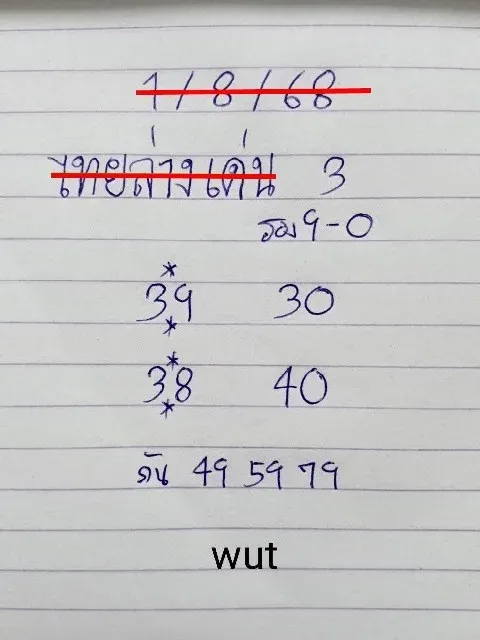 1/8/68
ไทยล่างเด่น 3
รอง 9-0
39 30
38 40
ดัน 49 59 79
wut